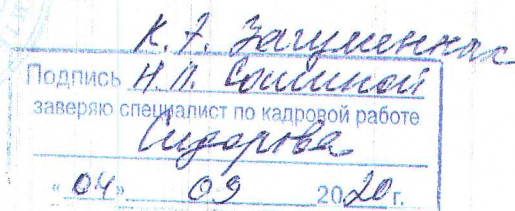 К. Э. Загуменная
Подпись Н.П. Сошиной
заверяю специалист по кадровой работе
Сидорова
«04» 09 2020 г.